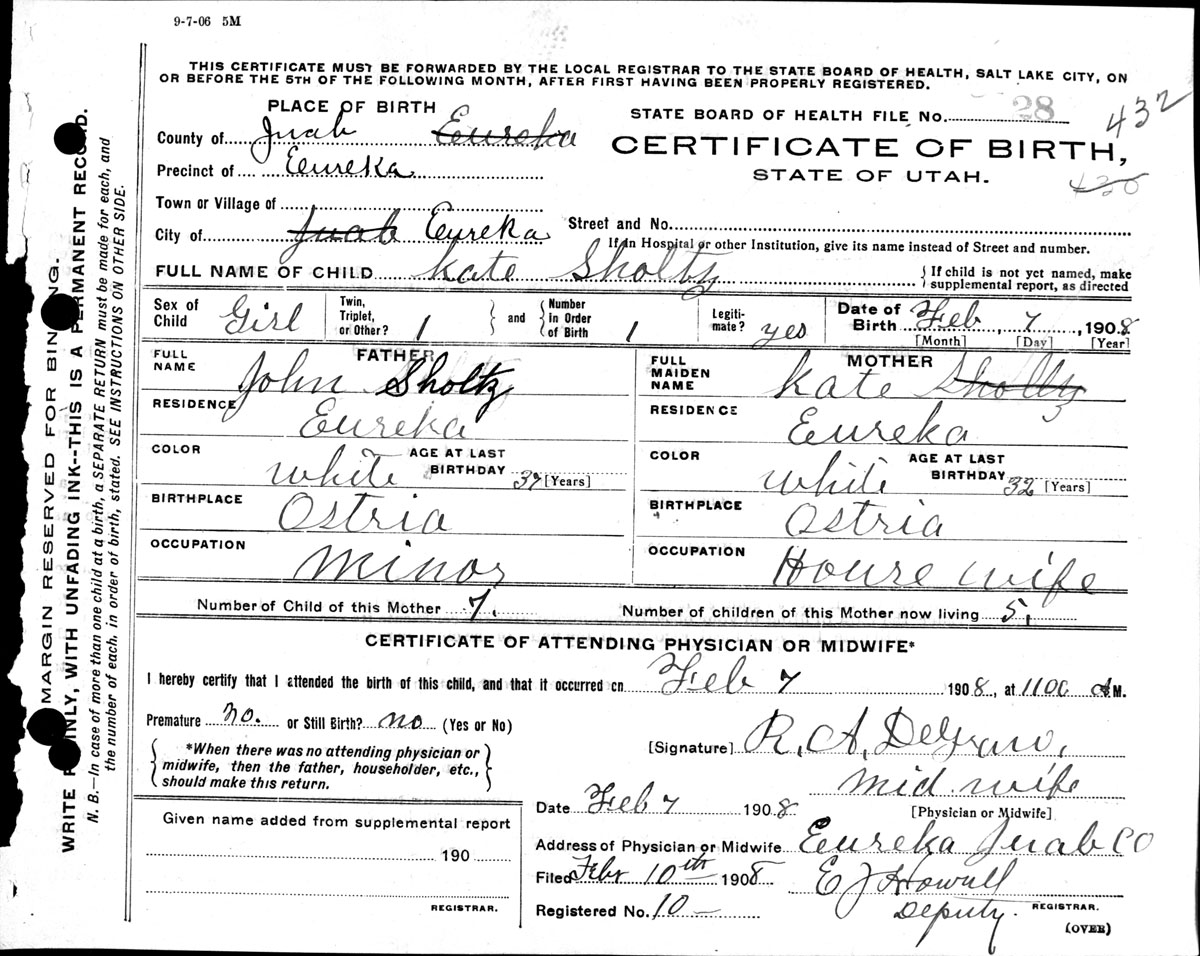 9-7-06 5M
THIS CERTIFICATE MUST BE FORWARDED BY THE LOCAL REGISTRAR TO THE STATE BOARD OF HEALTH, SALT LAKE CITY, ON
OR BEFORE THE 5TH OF THE FOLLOWING MONTH, AFTER FIRST HAVING BEEN PROPERLY REGISTERED.
PLACE OF BIRTH
STATE BOARD OF HEALTH FILE No. 28 432
County of Juab Eureka
CERTIFICATE OF BIRTH,
Precinct of Eureka
STATE OF UTAH.
Town or Village of
City of Juab Eureka
Street and No.
If in Hospital or other Institution, give its name instead of Street and number.
FULL NAME OF CHILD Kate Sholtz
{ If child is not yet named, make
supplemental report, as directed
Sex of Child Girl
Twin, Triplet, or Other? 1
and
Number in Order of Birth 1
Legiti-mate? yes
Date of Birth Feb, 7, 1908
[Month] [Day] [Year]
FATHER
FULL NAME John Sholtz
RESIDENCE Eureka
COLOR white
AGE AT LAST BIRTHDAY 37 [Years]
BIRTHPLACE Ostria
OCCUPATION Minor
MOTHER
FULL MAIDEN NAME Kate Sholtz
RESIDENCE Eureka
COLOR white
AGE AT LAST BIRTHDAY 32 [Years]
BIRTHPLACE Ostria
OCCUPATION House wife
Number of Child of this Mother 7.
Number of children of this Mother now living 5,
CERTIFICATE OF ATTENDING PHYSICIAN OR MIDWIFE*
I hereby certify that I attended the birth of this child, and that it occurred on Feb 7 1908, at 1100 A M.
Premature no. or Still Birth? no (Yes or No)
{ *When there was no attending physician or
midwife, then the father, householder, etc.,
should make this return. }
[Signature] R. A.
mid wife
[Physician or Midwife]
Date Feb 7 1908
Address of Physician or Midwife Eureka Juab CO
Filed Febr 10th 1908
E J Howell
Deputy. REGISTRAR.
Registered No. 10 —
(OVER)
Given name added from supplemental report
190
REGISTRAR.
MARGIN RESERVED FOR BINDING.
WRITE PLAINLY, WITH UNFADING INK--THIS IS A PERMANENT RECORD.
N. B.—In case of more than one child at a birth, a SEPARATE RETURN must be made for each, and
the number of each, in order of birth, stated. SEE INSTRUCTIONS ON OTHER SIDE.